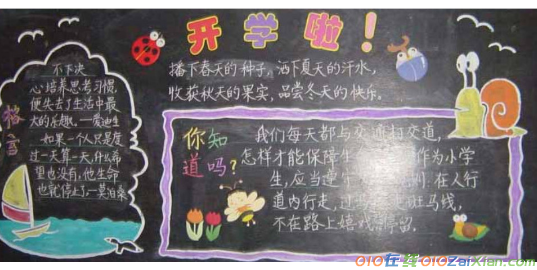 开学啦！
播下春天的种子，洒下夏天的汗水，
收获秋天的果实，品尝冬天的快乐。
格言
不下决
心培养思考习惯，
便失去了生活中最
大的乐趣。—爱迪生
如果一个人只是度
过一天算一天，什么希
望也没有，他生命
也就停止了—莫泊桑
你知
道吗？
我们每天都与交通打交道，
怎样才能保障生 作为小学
生，应当遵守 则。在人行
道内行走，过 走斑马线，
不在路上嬉戏 停留。
OIO在线 OIOZaiXian.com